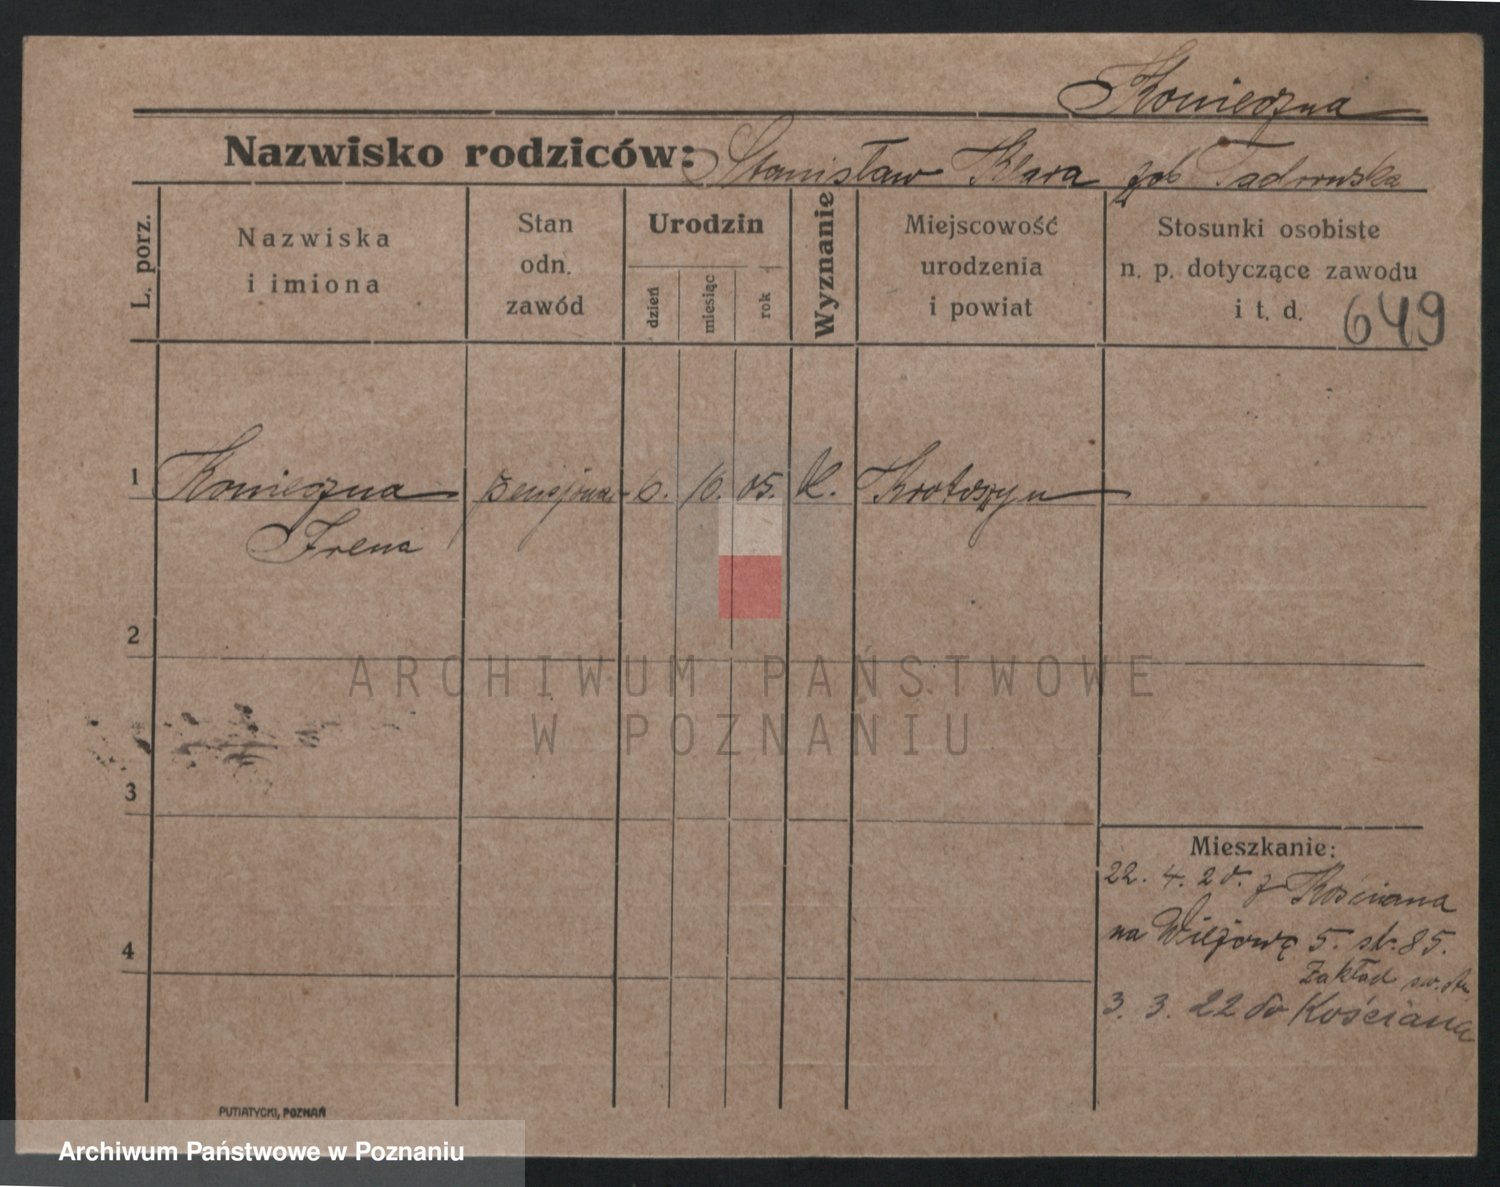 Konieczna
Nazwisko rodziców: Stanisław Klara
L. porz.
Nazwiska
i imiona
Stan
odn.
zawód
Urodzin
dzień
miesiąc
rok
Wyznanie
Miejscowość
urodzenia
i powiat
Stosunki osobiste
n. p. dotyczące zawodu
i t. d.
649
1 Konieczna 6. 10. 05. K. Krotoszyn
Irena
2
3
4
Mieszkanie:
22. 4. 20. z Kościana
na 5. 85.
Zakład św.
3. 3. 22 do Kościana
PUTIATYCKI, POZNAŃ
ARCHIWUM PAŃSTWOWE
W POZNANIU
Archiwum Państwowe w Poznaniu